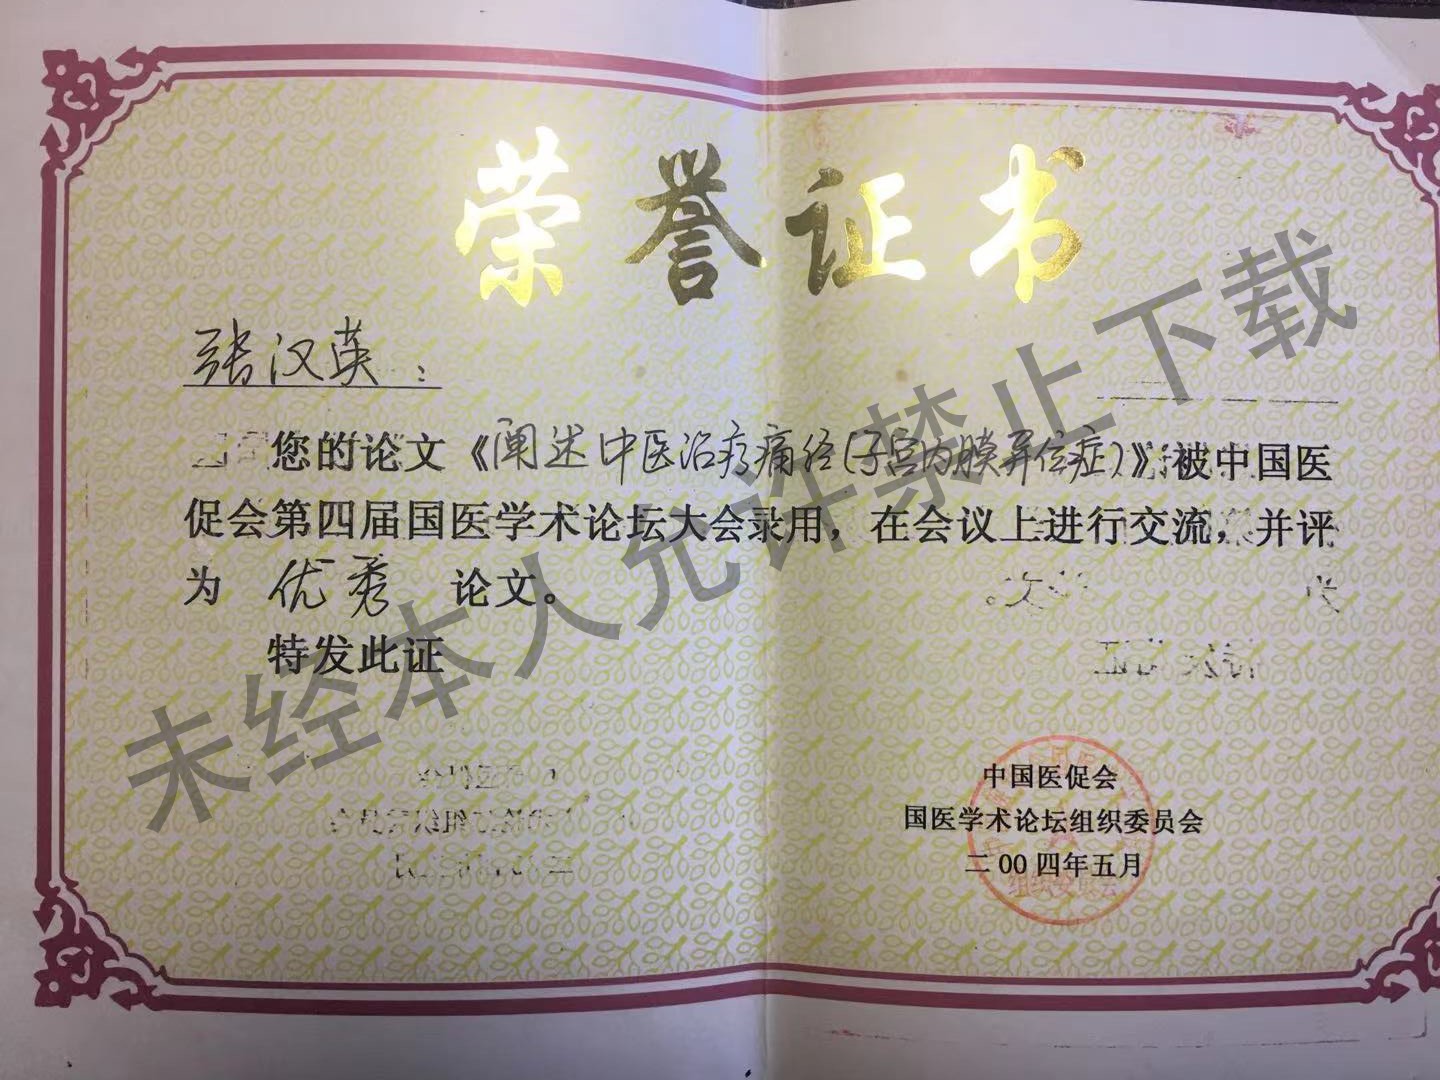 荣誉证书
张汉英：
您的论文《阐述中医治疗痛经(子宫内膜异位症)》被中国医
促会第四届国医学术论坛大会录用，在会议上进行交流，并评
为 优秀 论文。
特发此证
中国医促会
国医学术论坛组织委员会
二00四年五月
组织委员会
未经本人允许禁止下载